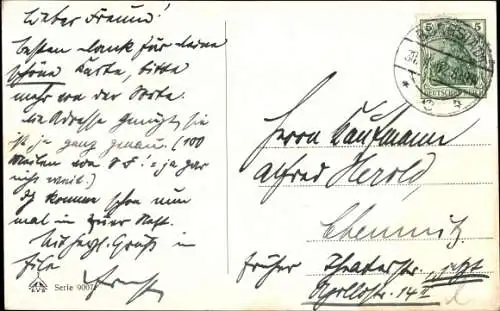 Lieber Freund!
besten Dank für deine
schöne Karte, bitte
mehr von der Sorte.
die Adresse genügt, sie
ist ja ganz genau. (100
Meilen von S.F. = ja gar
nicht weit.)
Ich komme schon nun
mal in
Mit herzl. Gruß in
Eile
Serie 9007
DEUTSCHES REICH
5
Herrn Kaufmann
Alfred Herold,
Chemnitz
früher Theaterstr., jetzt
Apollostr. 14